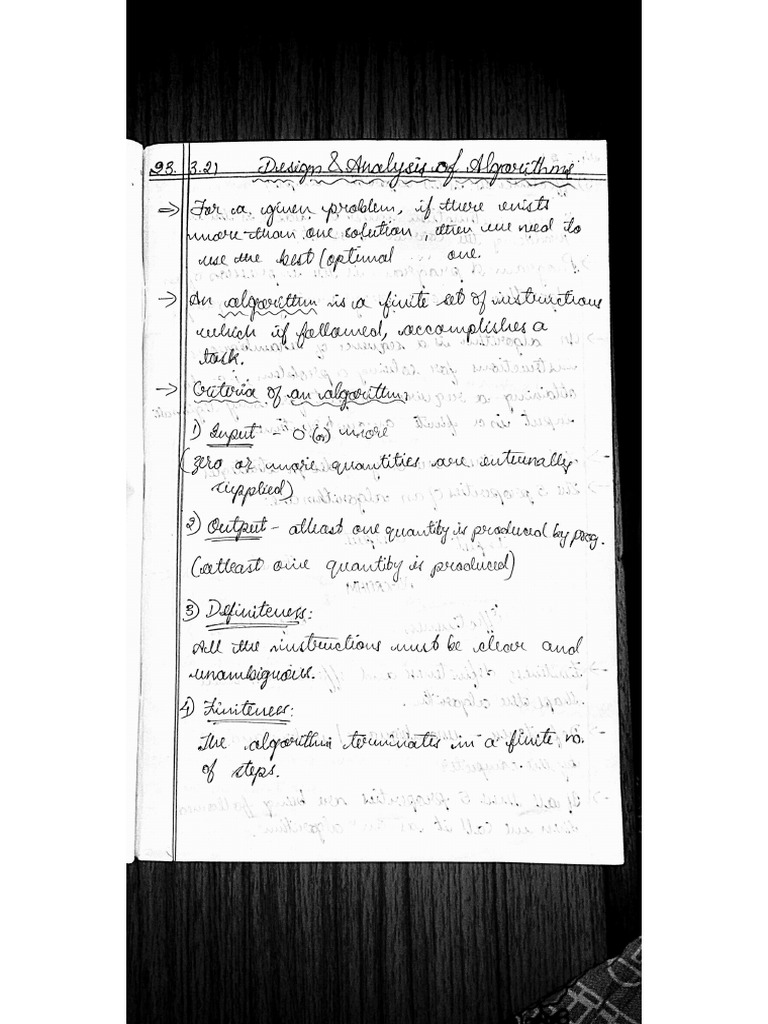 23. 3.21 Design & Analysis of Algorithms
→ For a given problem, if there exists
more than one solution, then we need to
use the best (optimal one.
→ An algorithm is a finite set of instructions
which if followed, accomplishes a
task.
→ Criteria of an algorithm:
1) Input - 0 (or) more
(zero or more quantities are externally
supplied)
2) Output - atleast one quantity is produced by prog.
(atleast one quantity is produced)
3) Definiteness:
All the instructions must be clear and
unambiguous.
4) Finiteness:
The algorithm terminates in a finite no.
of steps.